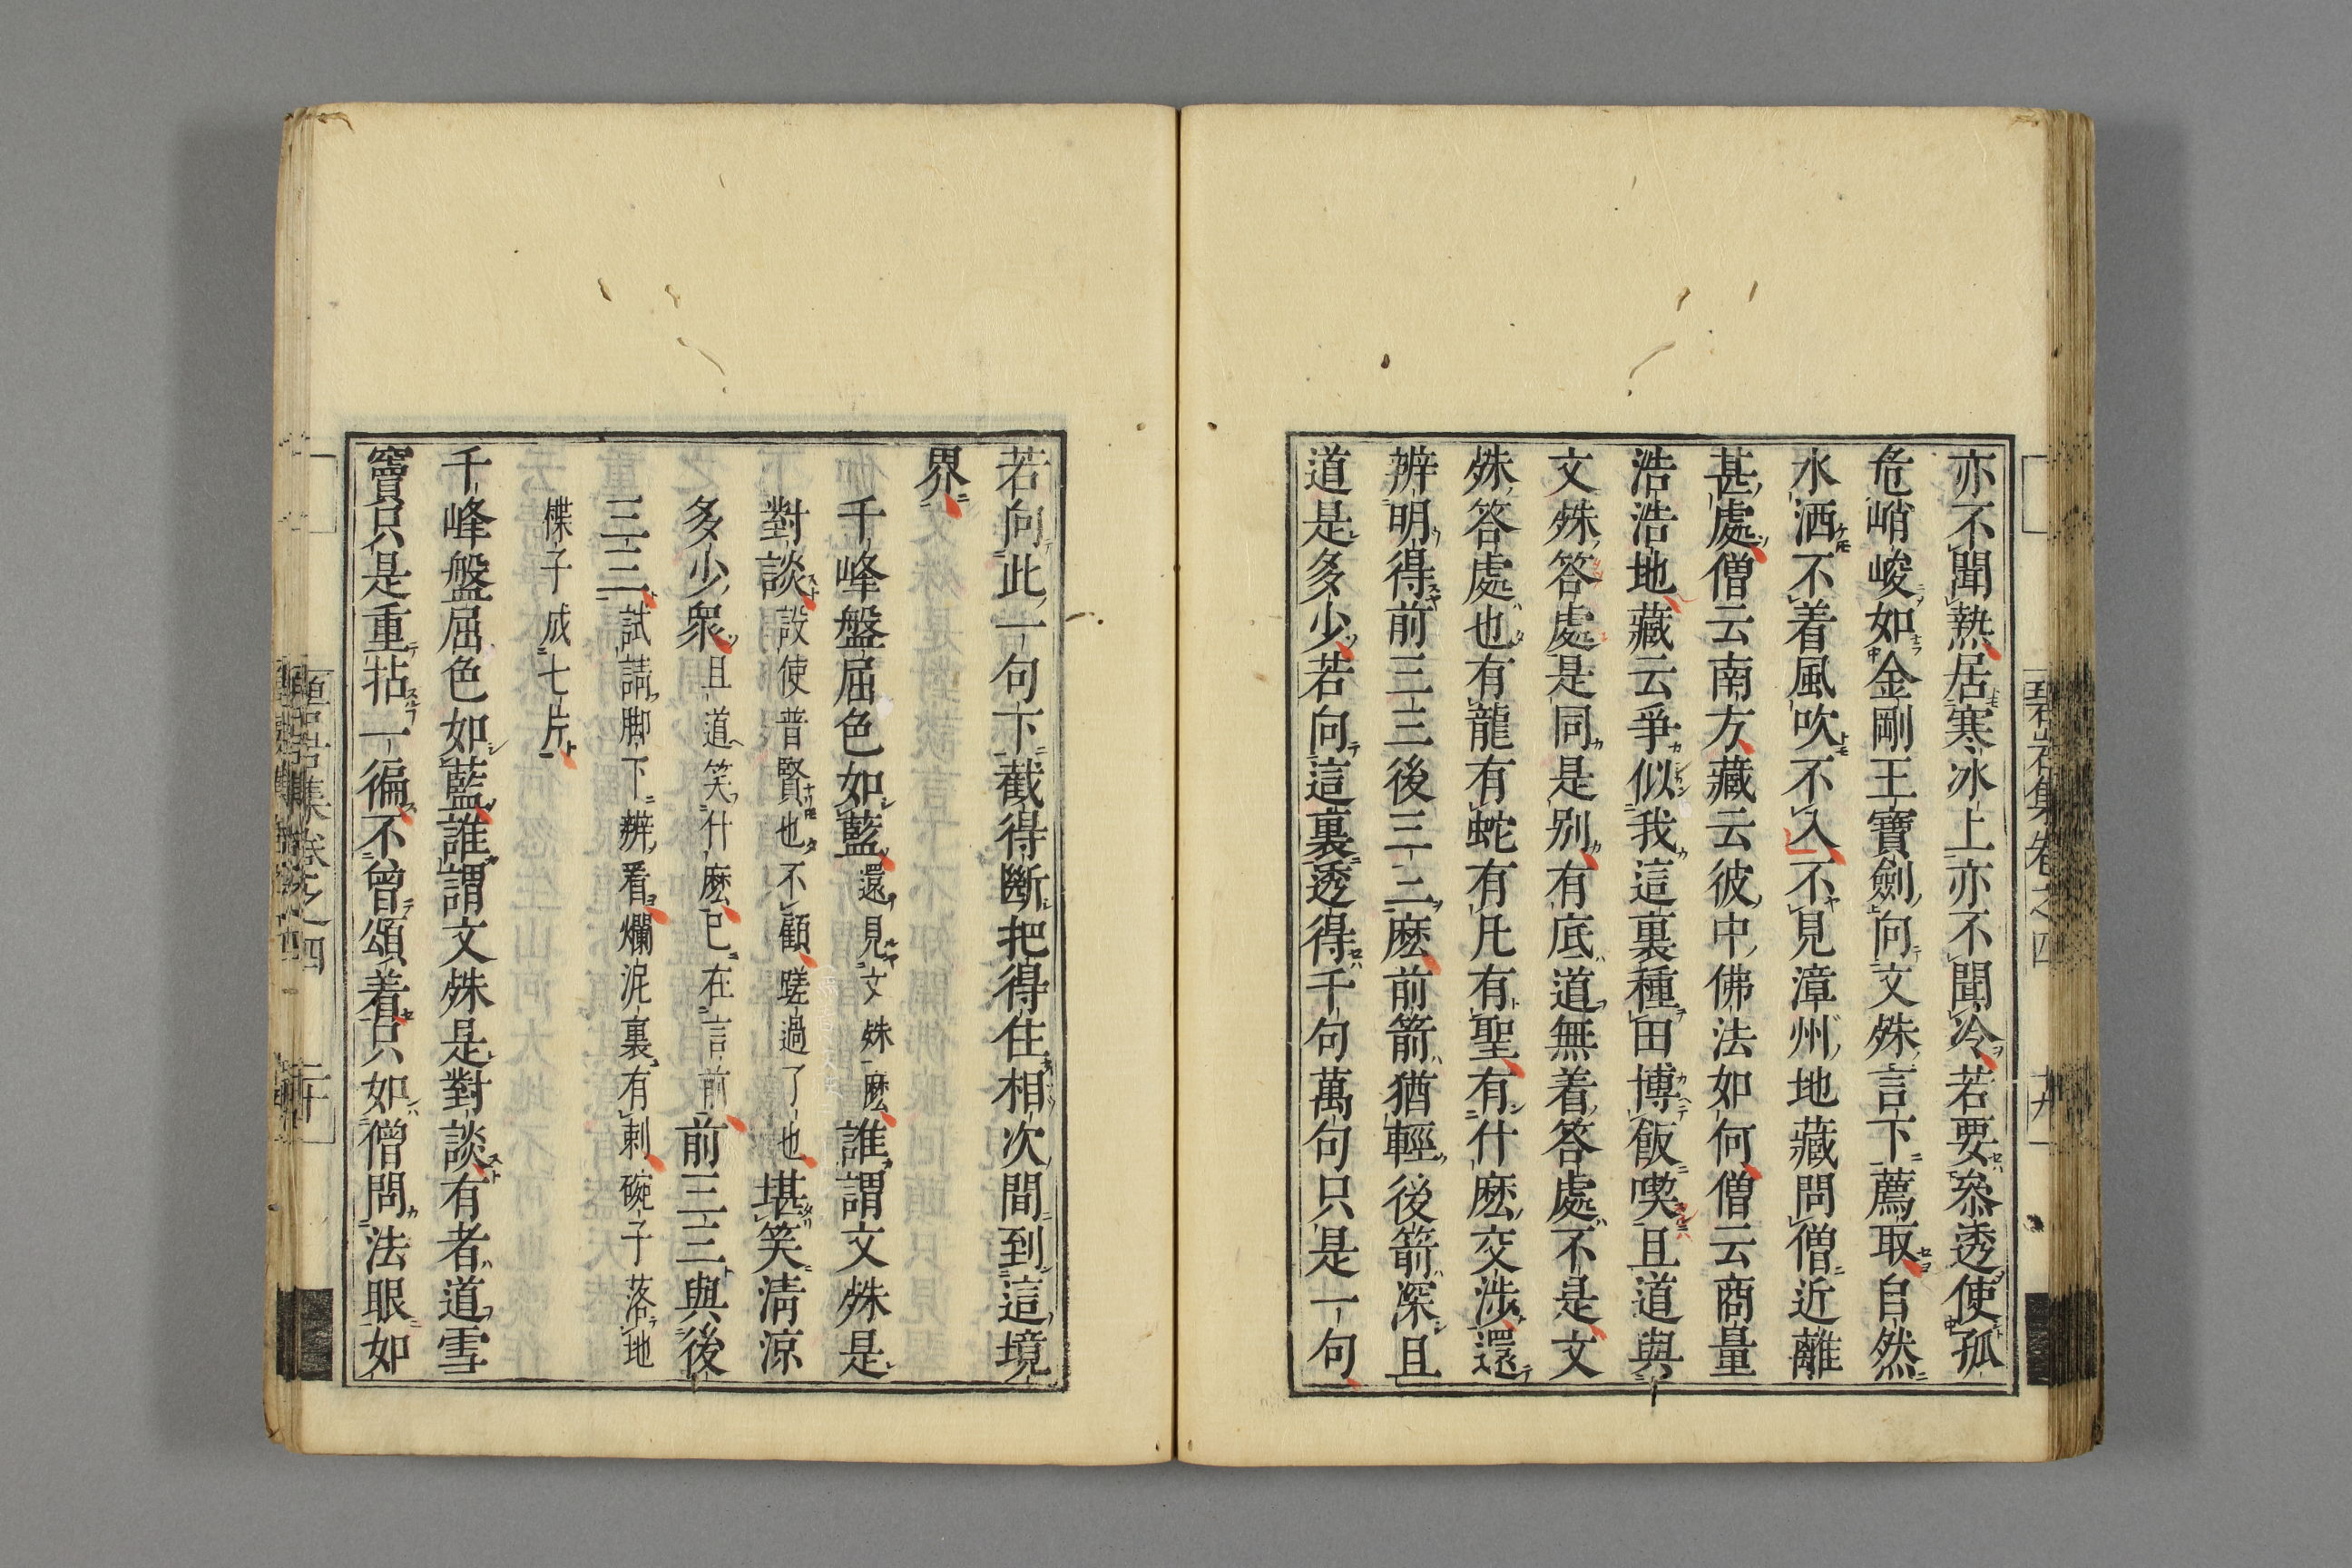 亦不聞熱居寒冰上亦不聞冷若要叅透使孤
危峭峻如金剛王寶劍向文殊言下薦取自然
水洒不着風吹不入不見漳州地藏問僧近離
甚處僧云南方藏云彼中佛法如何僧云商量
浩浩地藏云爭似我這裏種田博飯喫且道與
文殊答處是同是別有底道無着答處不是文
殊答處也有龍有蛇有凡有聖有什麽交涉還
辨明得前三三後三三麽前箭猶輕後箭深且
道是多少若向這裏透得千句萬句只是一句
若向此一句下截得斷把得住相次間到這境
界
千峰盤屈色如藍還見文殊麽誰謂文殊是
對談設使普賢也不顧蹉過了也堪笑清涼
多少衆且道笑什麽已在言前前三三與後
三三試請脚下辨看爛泥裏有刺碗子落地
楪子成七片
千峰盤屈色如藍誰謂文殊是對談有者道雪
竇只是重拈一徧不曾頌着只如僧問法眼如
碧岩集卷之四
二十